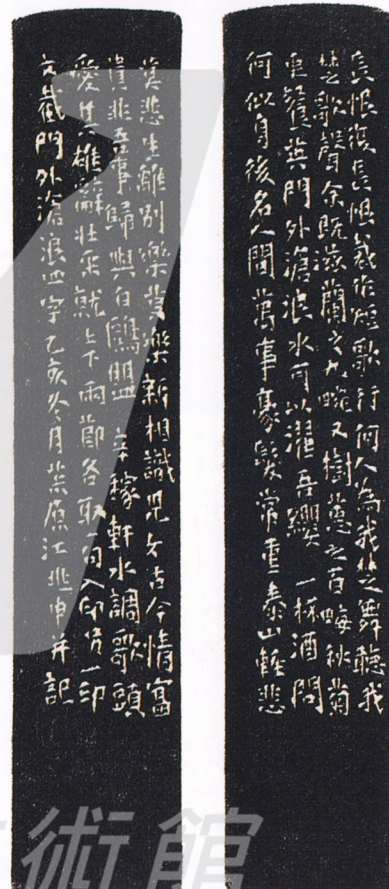 長恨復長恨裁作短歌行何人為我楚舞聽我
楚歌聲余既滋蘭之九畹又樹蕙之百畮秋菊
更餐英門外滄浪水可以濯吾纓一桮酒問
何似身後名人間萬事豪髮常重泰山輕悲
莫悲生離別樂莫樂新相識兒女古今情富
貴非吾事歸與白鷗盟 辛稼軒水調歌頭
愛其雄壯采就上下兩節各取一句入印一印
文截門外滄浪四字乙亥冬月茮原江兆申并記
術館